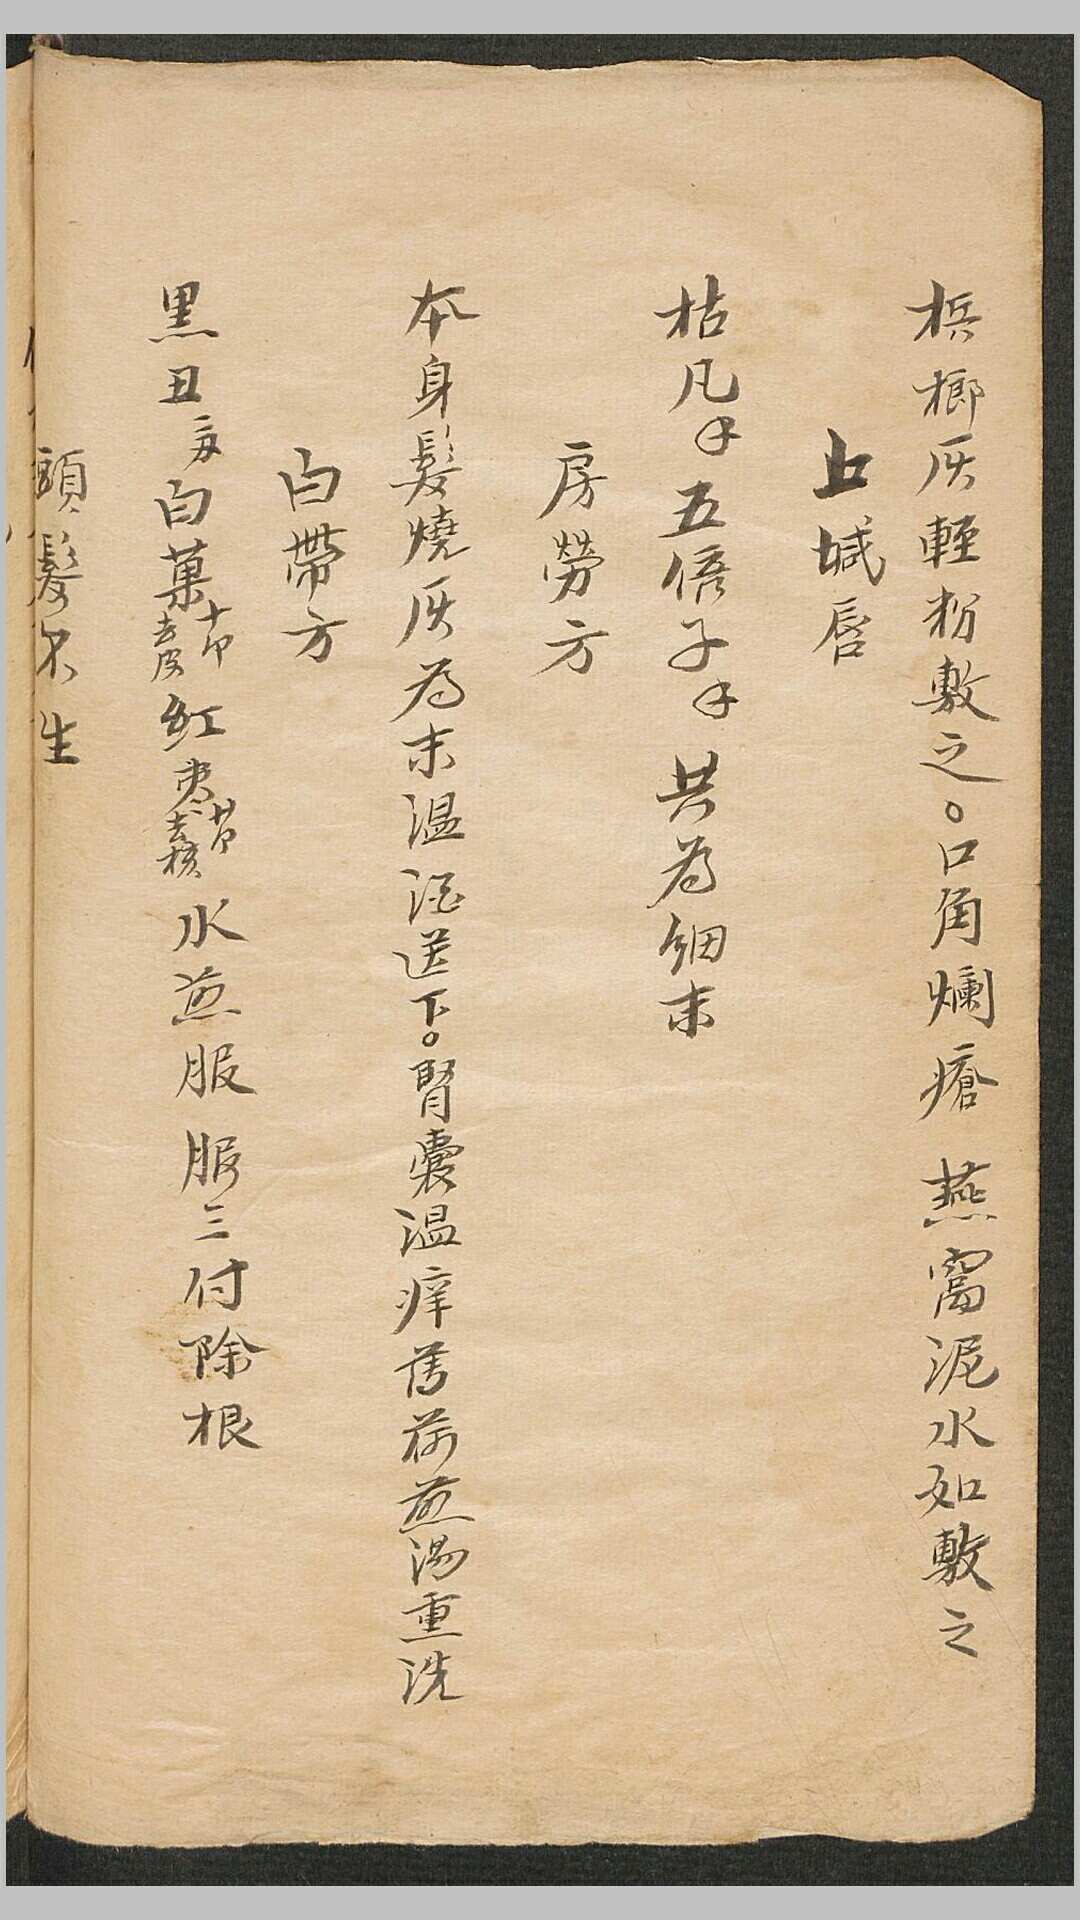 梹榔灰輕粉敷之。口角爛瘡 燕窩泥水如敷之
上堿唇
枯凡 五倍子 共為細末
房勞方
本身髮燒灰為末温酒送下。腎囊温痒 薄荷煎湯重洗
白帶方
黑丑 白菓十个去皮 紅枣廿个去核 水煎服 服三付除根
頭髮不生